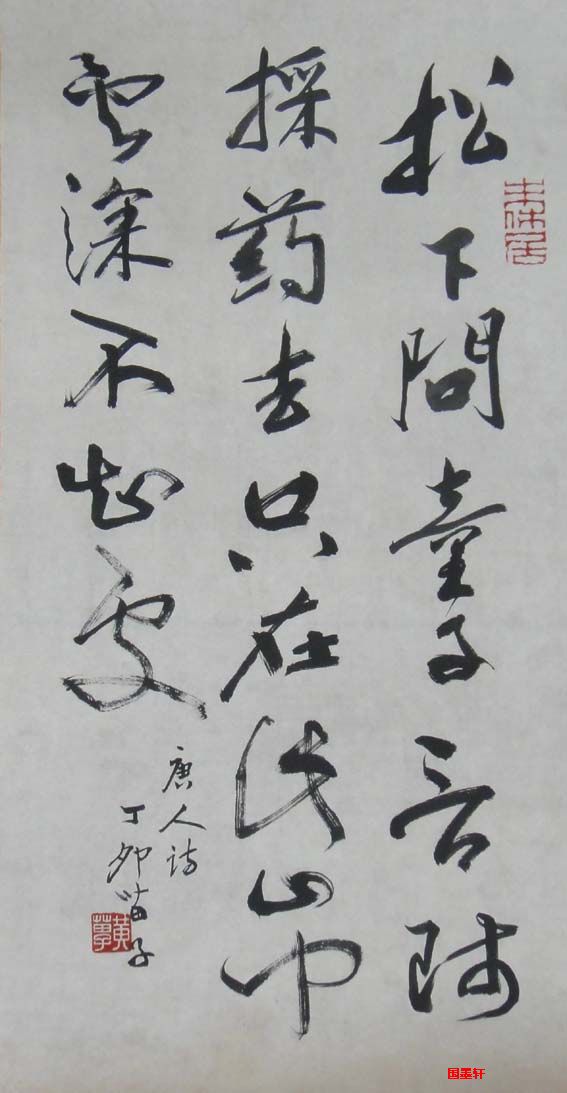 松下問童子言師
採葯去只在此山中
雲深不知處
唐人詩
丁卯苗子
黄
国墨轩